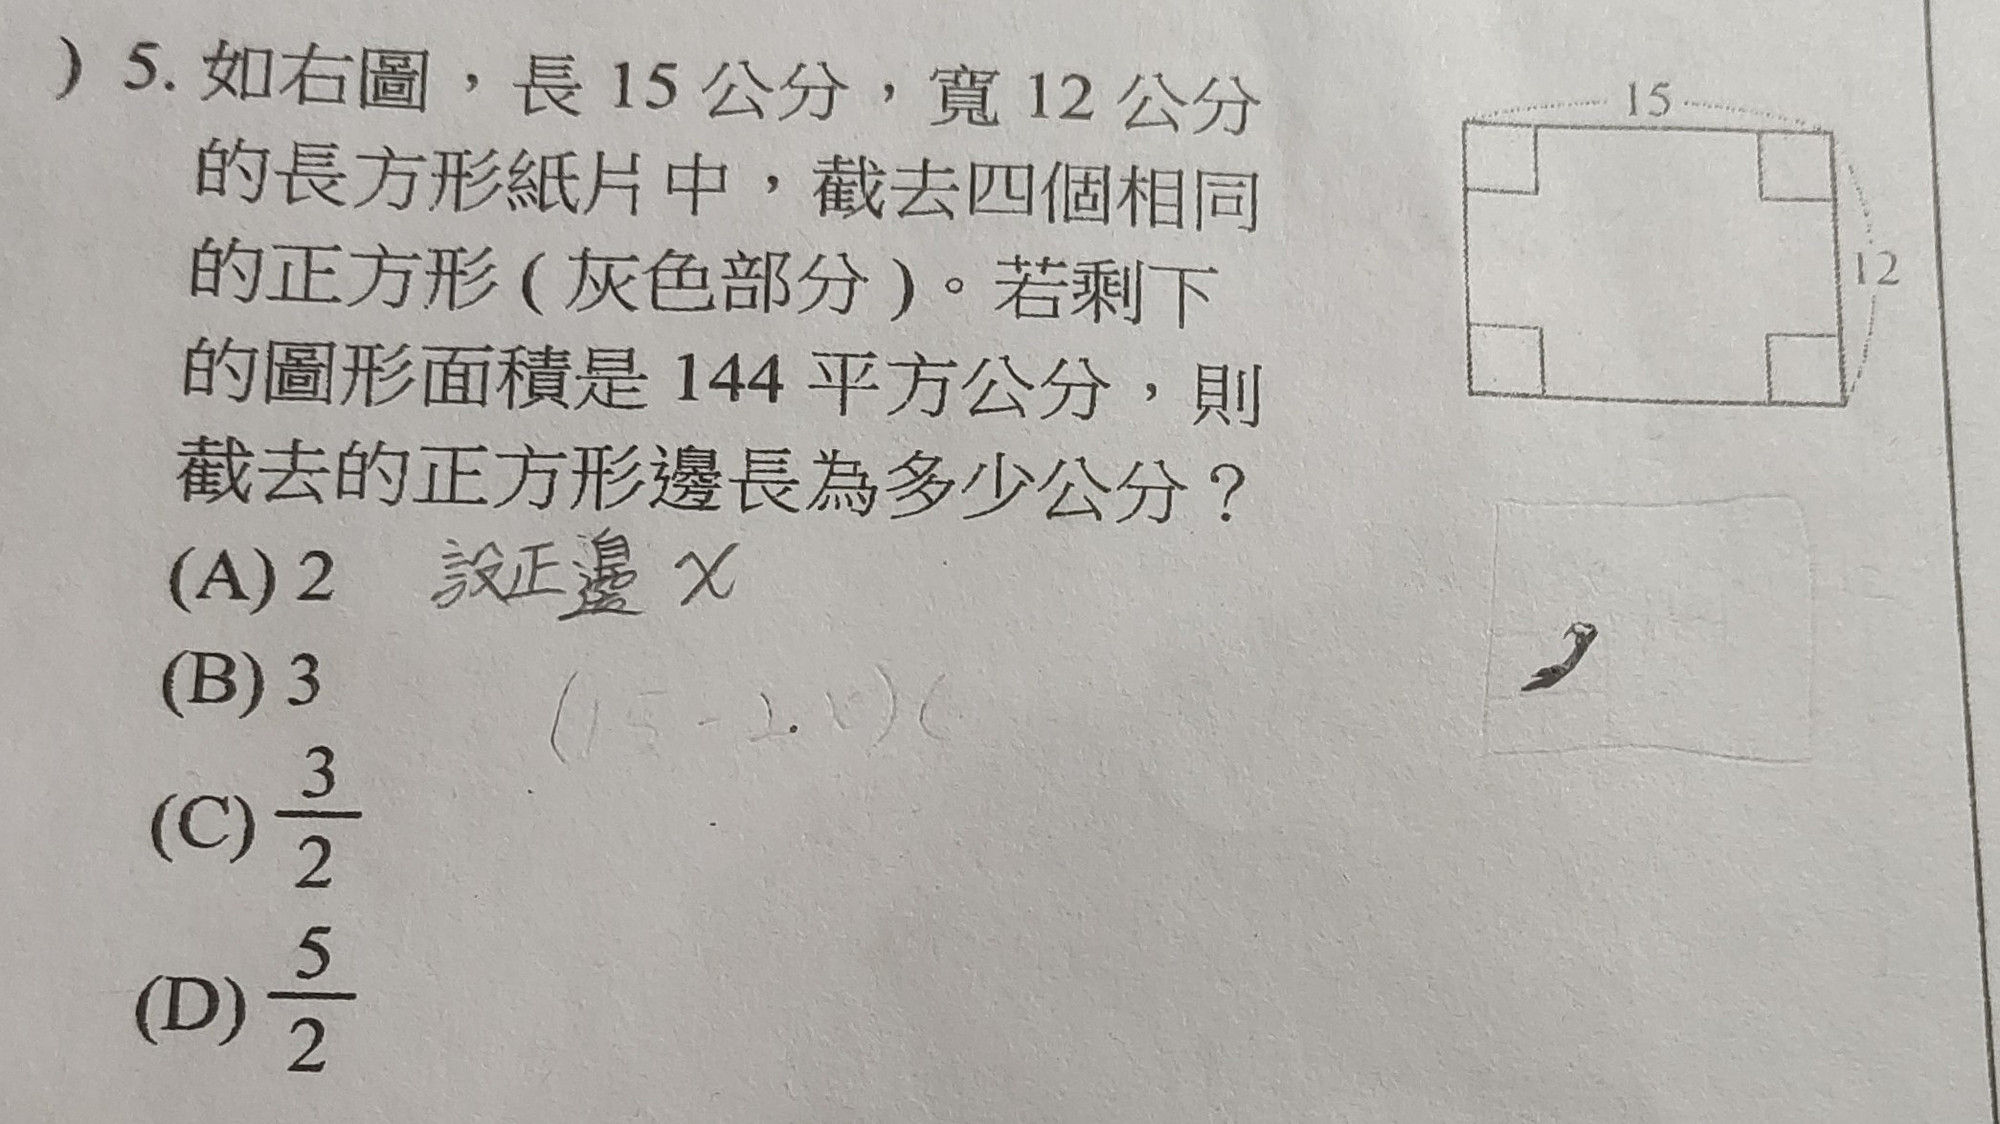 ) 5. 如右圖，長 15 公分，寬 12 公分
的長方形紙片中，截去四個相同
的正方形 ( 灰色部分 )。若剩下
的圖形面積是 144 平方公分，則
截去的正方形邊長為多少公分？
(A) 2
設正邊 x
(B) 3
(15-2
(C) 3/2
(D) 5/2
15
12